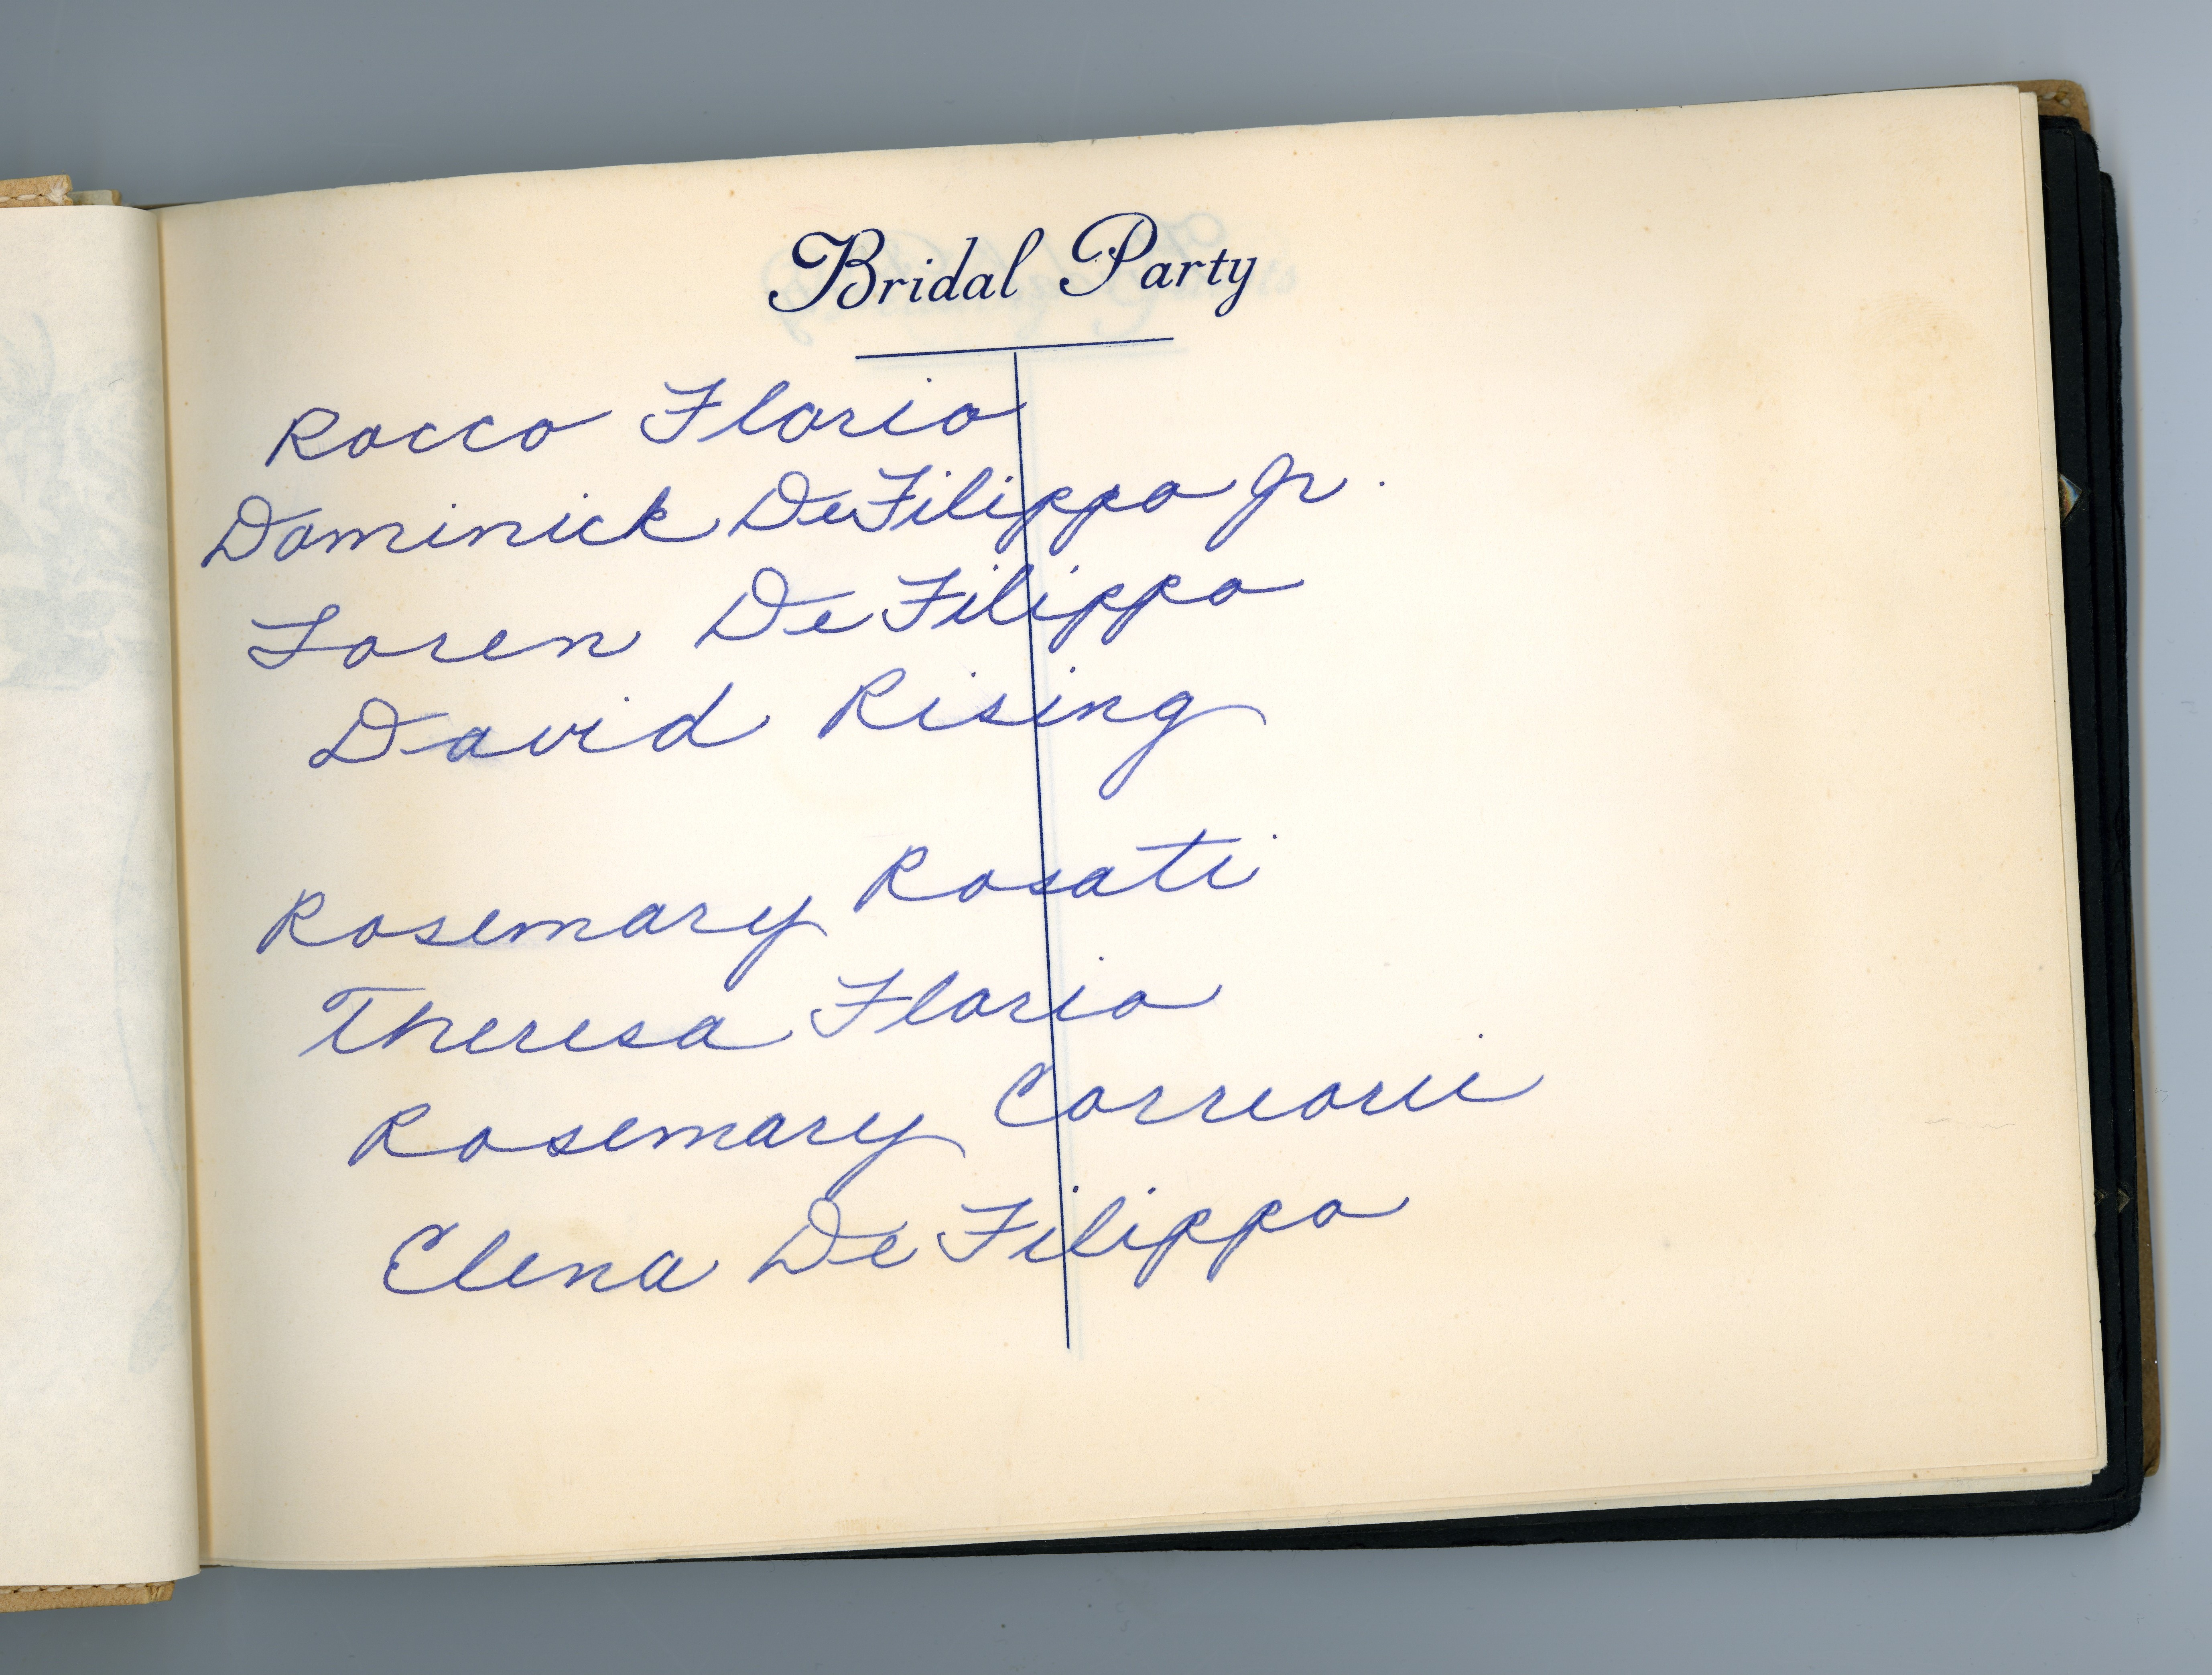 Bridal Party
Rocco Florio
Dominick DeFilippo Jr.
Loren DeFilippo
David Rising
Rosemary Rosati
Theresa Florio
Rosemary
Elena DeFilippo